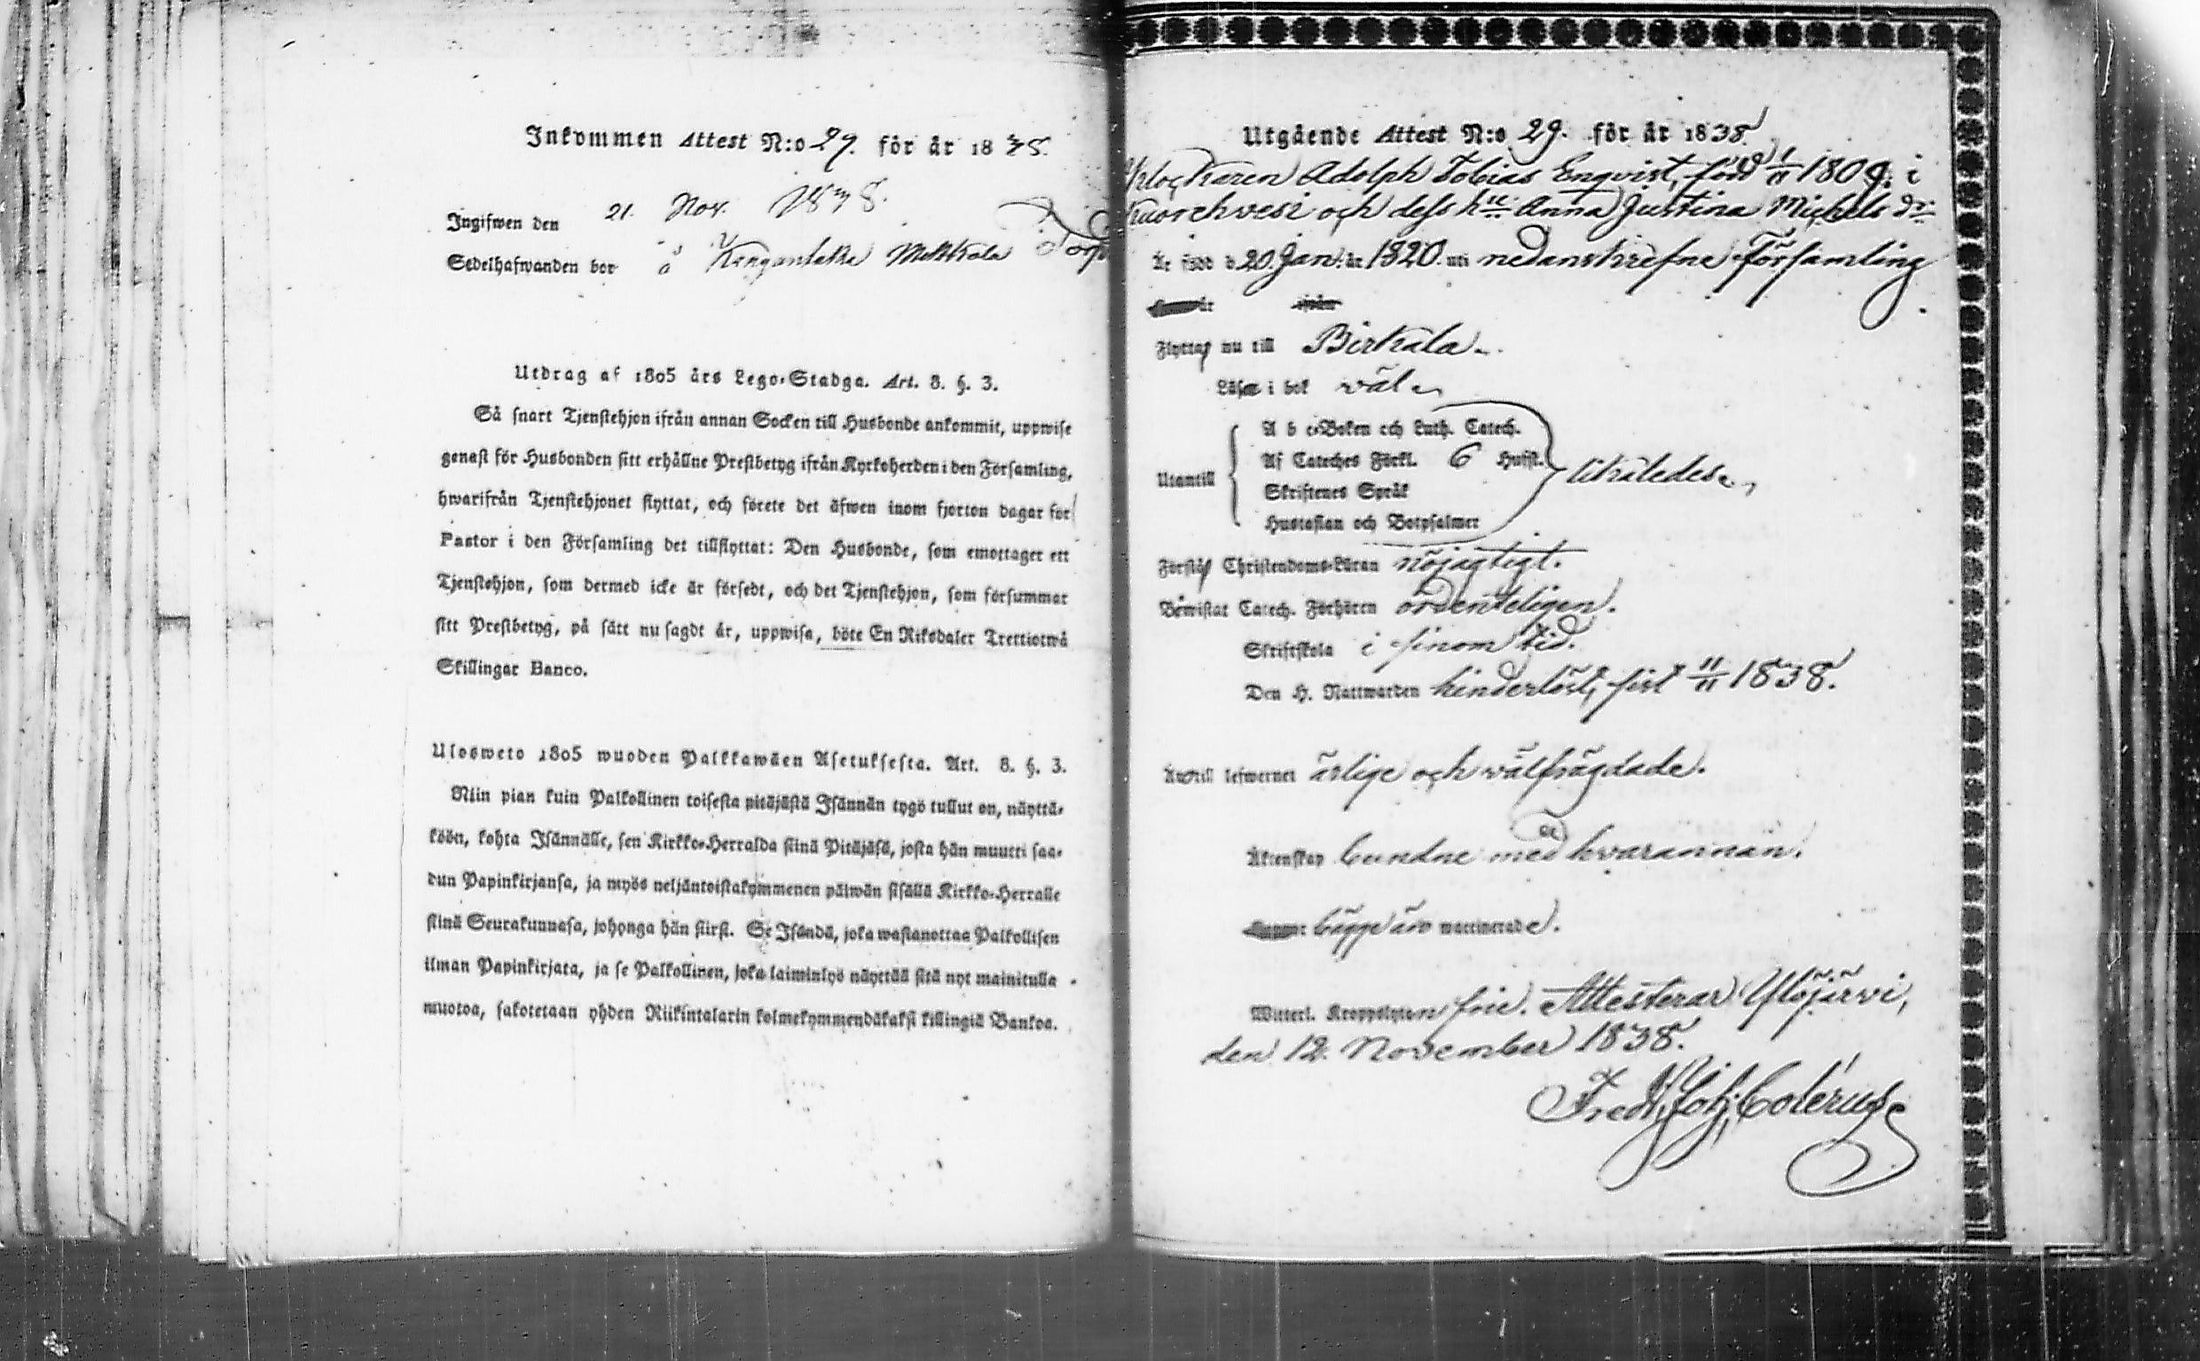 Inkommen Attest N:o 29. för år 1838.
Ingifwen den 21. Nov. 1838.
Sedelhafwanden bor å Mattkala Torp
Utdrag af 1805 års Lego-Stadga. Art. 8. §. 3.
Så snart Tjenstehjon ifrån annan Socken till Husbonde ankommit, uppwise
genast för Husbonden sitt erhållne Prestbetyg ifrån Kyrkoherden i den Församling,
hwarifrån Tjenstehjonet flyttat, och förete det äfwen inom fjorton dagar för
Pastor i den Församling det tillflyttat: Den Husbonde, som emottager ett
Tjenstehjon, som dermed icke är försedt, och det Tjenstehjon, som försummar
sitt Prestbetyg, på sätt nu sagdt är, uppwisa, böte En Riksdaler Trettiotwå
Skillingar Banco.
Ulosweto 1805 wuoden Palkkawäen Asetuksesta. Art. 8. §. 3.
Niin pian kuin Palkollinen toisesta pitäjästä Isännän tygö tullut on, näyttä-
köön, kohta Isännälle, sen Kirkko-Herralda siinä Pitäjäsä, josta hän muutti saa-
dun Papinkirjansa, ja myös neljäntoistakymmenen päiwän sisällä Kirkko-Herralle
siinä Seurakunnasa, johonga hän siirsi. Se Isändä, joka wastanottaa Palkollisen
ilman Papinkirjata, ja se Palkollinen, joka laiminlyö näyttää sitä nyt mainitulla
muotoa, sakotetaan yhden Riikintalarin kolmekymmendäkaksi killingiä Bankoa.
Utgående Attest N:o 29. för år 1838.
Adolph Tobias Enqvist, född 1/11 1809. i
Kuorehvesi och dess h:u Anna Justina Michels d:r
Är född d. 20. Jan: år 1820. uti nedanskrefne Församling.
Flyttar nu till Birkala.
Läser i bok väl
A b c-Boken och Luth. Catech.
Utantill Af Cateches Förkl. 6 Hufst. likaledes,
Skriftenes Språk
Hustaflan och Botpsalmer
Förstår Christendoms-Läran nöjagtigt.
Bewistat Catech. Förhören ordenteligen.
Skriftskola i sinom tid.
Den H. Nattwarden hinderlöst, sist 11/11 1838.
Är till lefwernet ärlige och välfrägdade.
Äktenskap bundne med hvarannan.
bägge äro waccinerade.
Witterl. Kroppslyten frie. Attesterar Ylöjärvi,
den 12. November 1838.
Fredr. Joh. Colerus